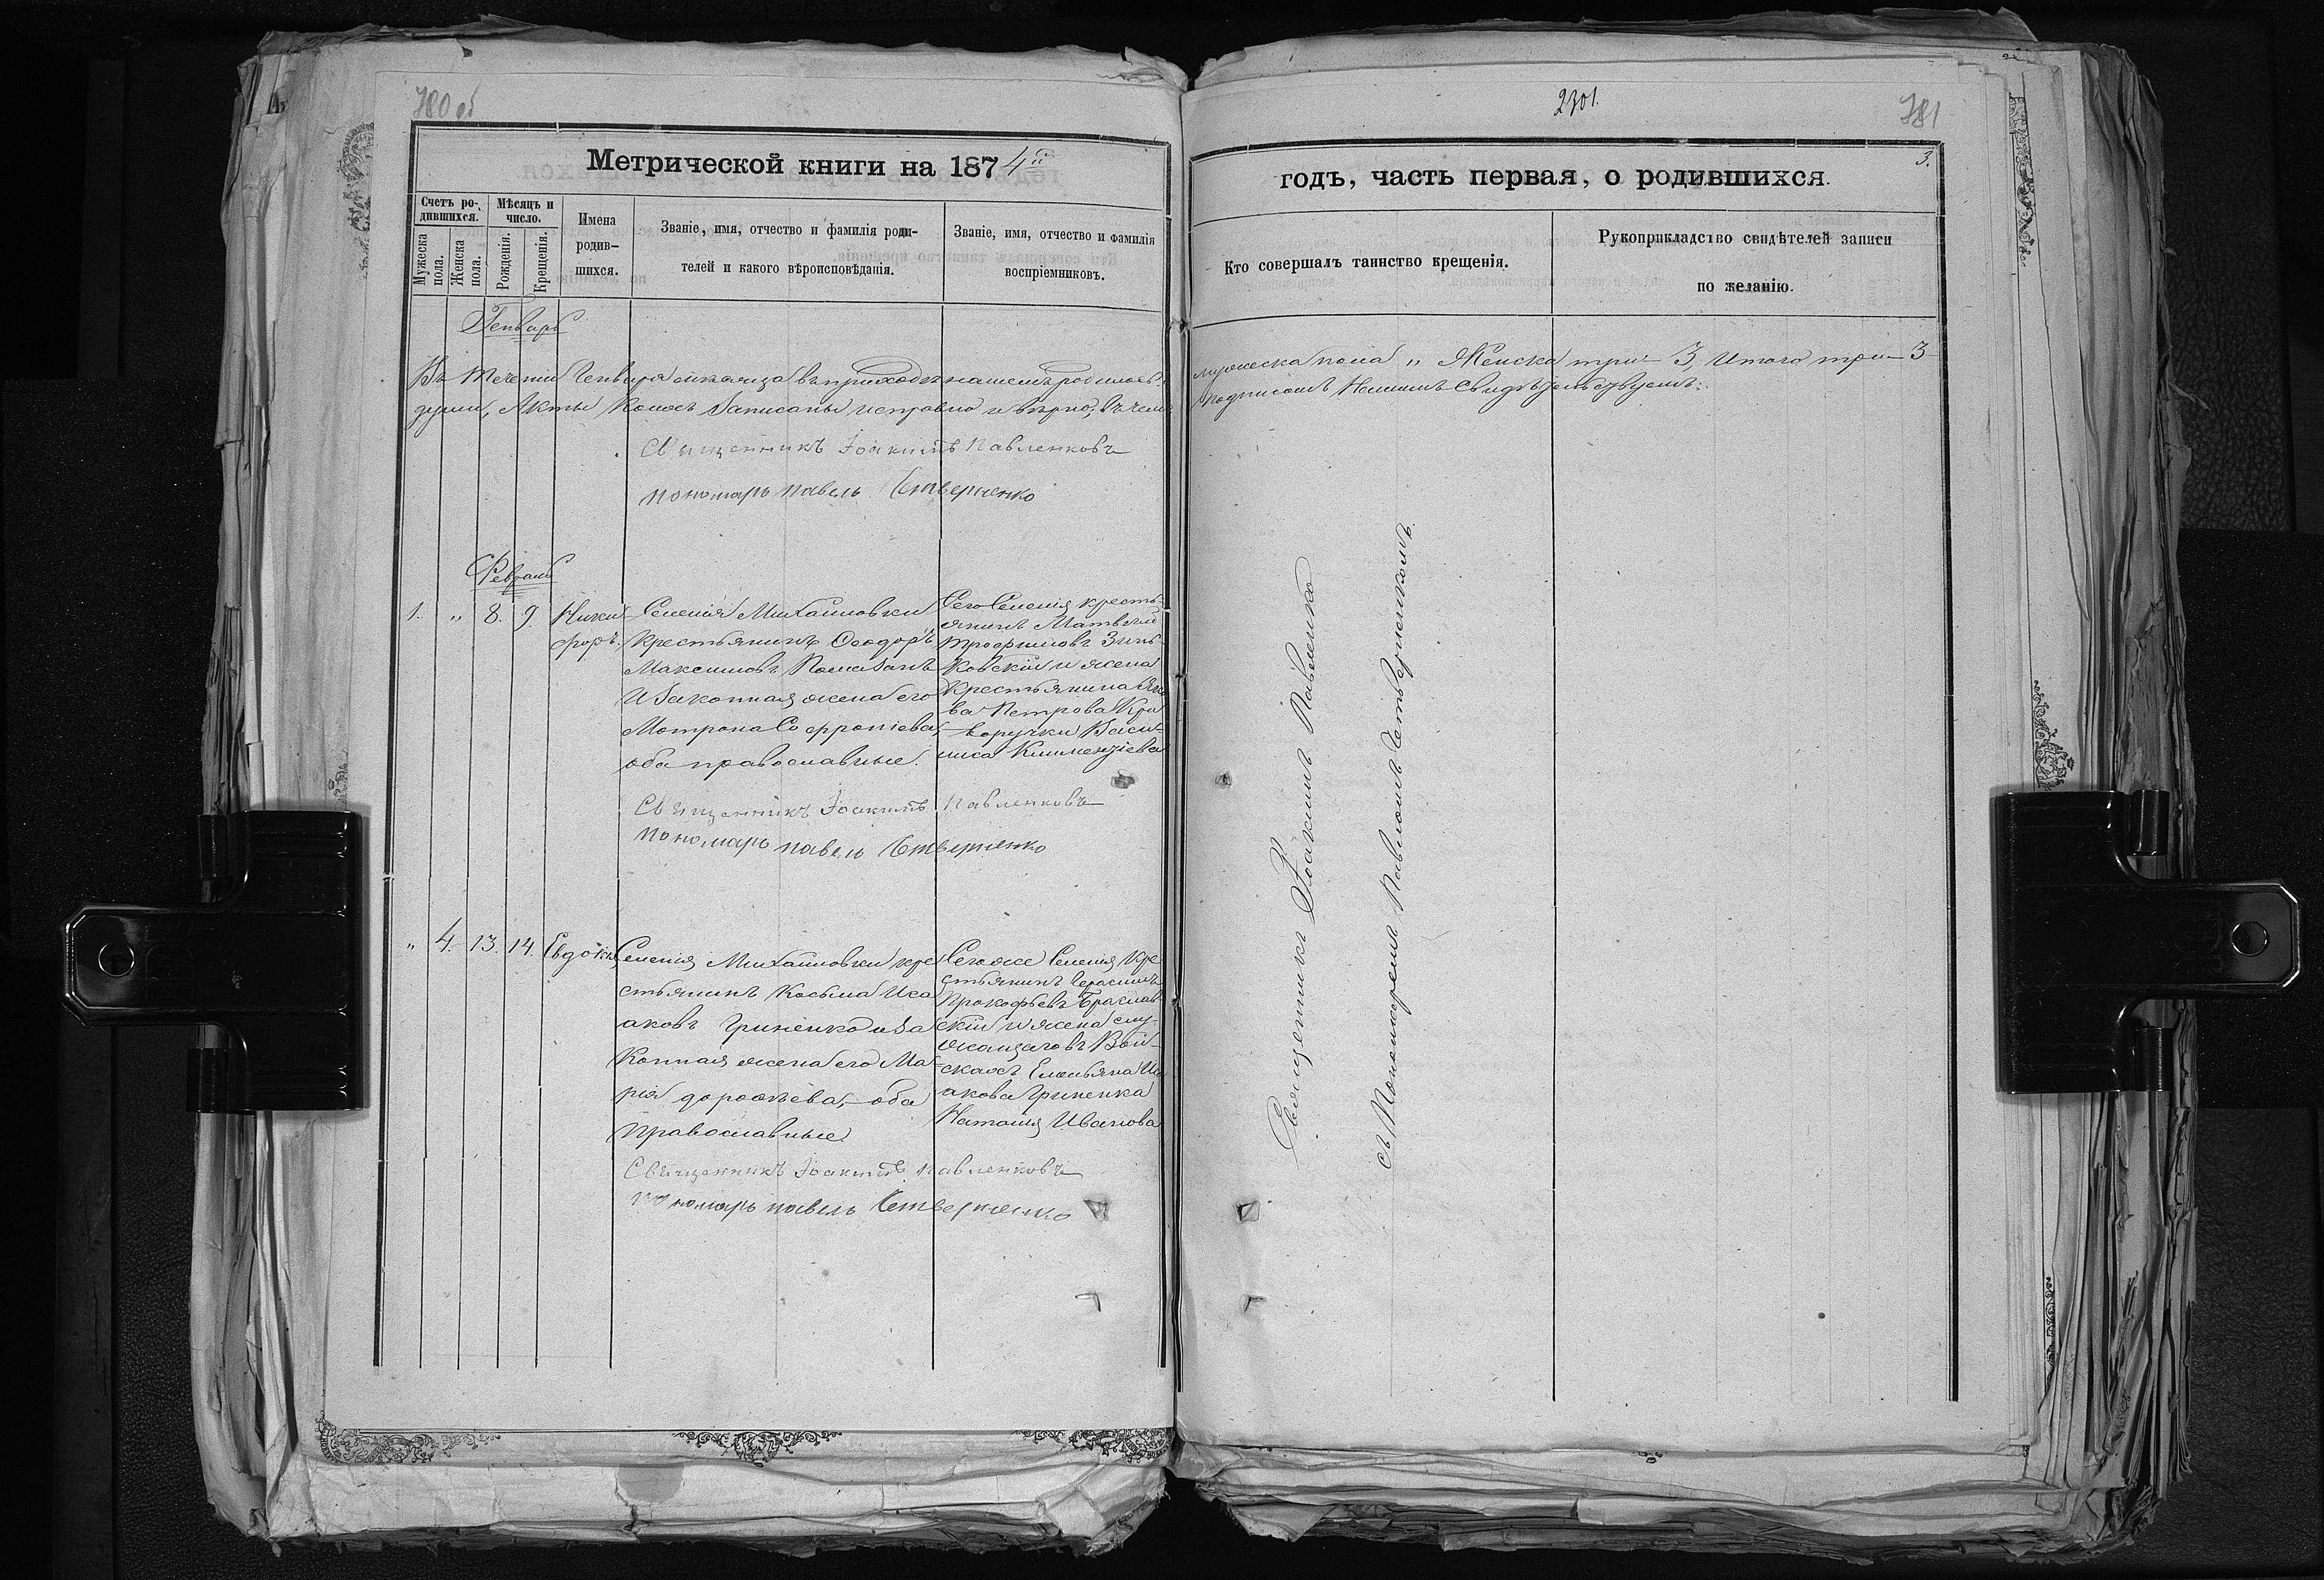 780 об
Метрической книги на 1874й
Счетъ ро-
дившихся.
Мужеска
пола.
Женска
пола.
Мѣсяцъ и
число.
Рожденія.
Крещенія.
Имена
родив-
шихся.
Званіе, имя, отчество и фамилія роди-
телей и какого вѣроисповѣданія.
Званіе, имя, отчество и фамилія
воспріемниковъ.
Генварь
Въ теченіи Генваря мѣсяца въ приходѣ нашемъ родилось
души, Акты коихъ записаны исправно и вѣрно, въ чемъ
Священникъ Іоакимъ Павленковъ
пономарь павелъ Четверненко
Февраль
1. „ 8. 9. Ники-
форъ.
Селенія Михайловки
крестьянинъ Ѳеодоръ
Максимовъ
и законная жена его
Мотрона Софроніева,
оба православные.
Сего Селенія кресть-
янинъ Матвѣй
Трофимовъ Зинь-
ковскій и жена
крестьянина Яко
ва Петрова Кри
воручки Васи-
лиса Климентіева
Священникъ Іоакимъ Павленковъ
пономарь павелъ Четверненко
„ 4. 13. 14. Евдокія
Селенія Михайловки кре
стьянинъ Косьма Иса
аковъ Гриненко и за
конная жена его Ма-
рія дороѳѣева, оба
православные.
Сего же Селенія кре
стьянинъ Герасимъ
Прокофьевъ Браслав
скій и жена слу-
жащаго въ Вой-
скахъ Емельяна Иса
акова Гриненка
Наталія Иванова
Священникъ Іоакимъ Павленковъ
пономарь павелъ Четверненко
2301.
781
3.
годъ, часть первая, о родившихся.
Кто совершалъ таинство крещенія.
Рукоприкладство свидѣтелей записи
по желанію.
мужеска пола „ Женска три 3, Итого три 3
подписомъ Нашимъ Свидѣтельствуемъ:
Священникъ Іоакимъ Павленко
съ Пономаремъ Павломъ Четверненкомъ.